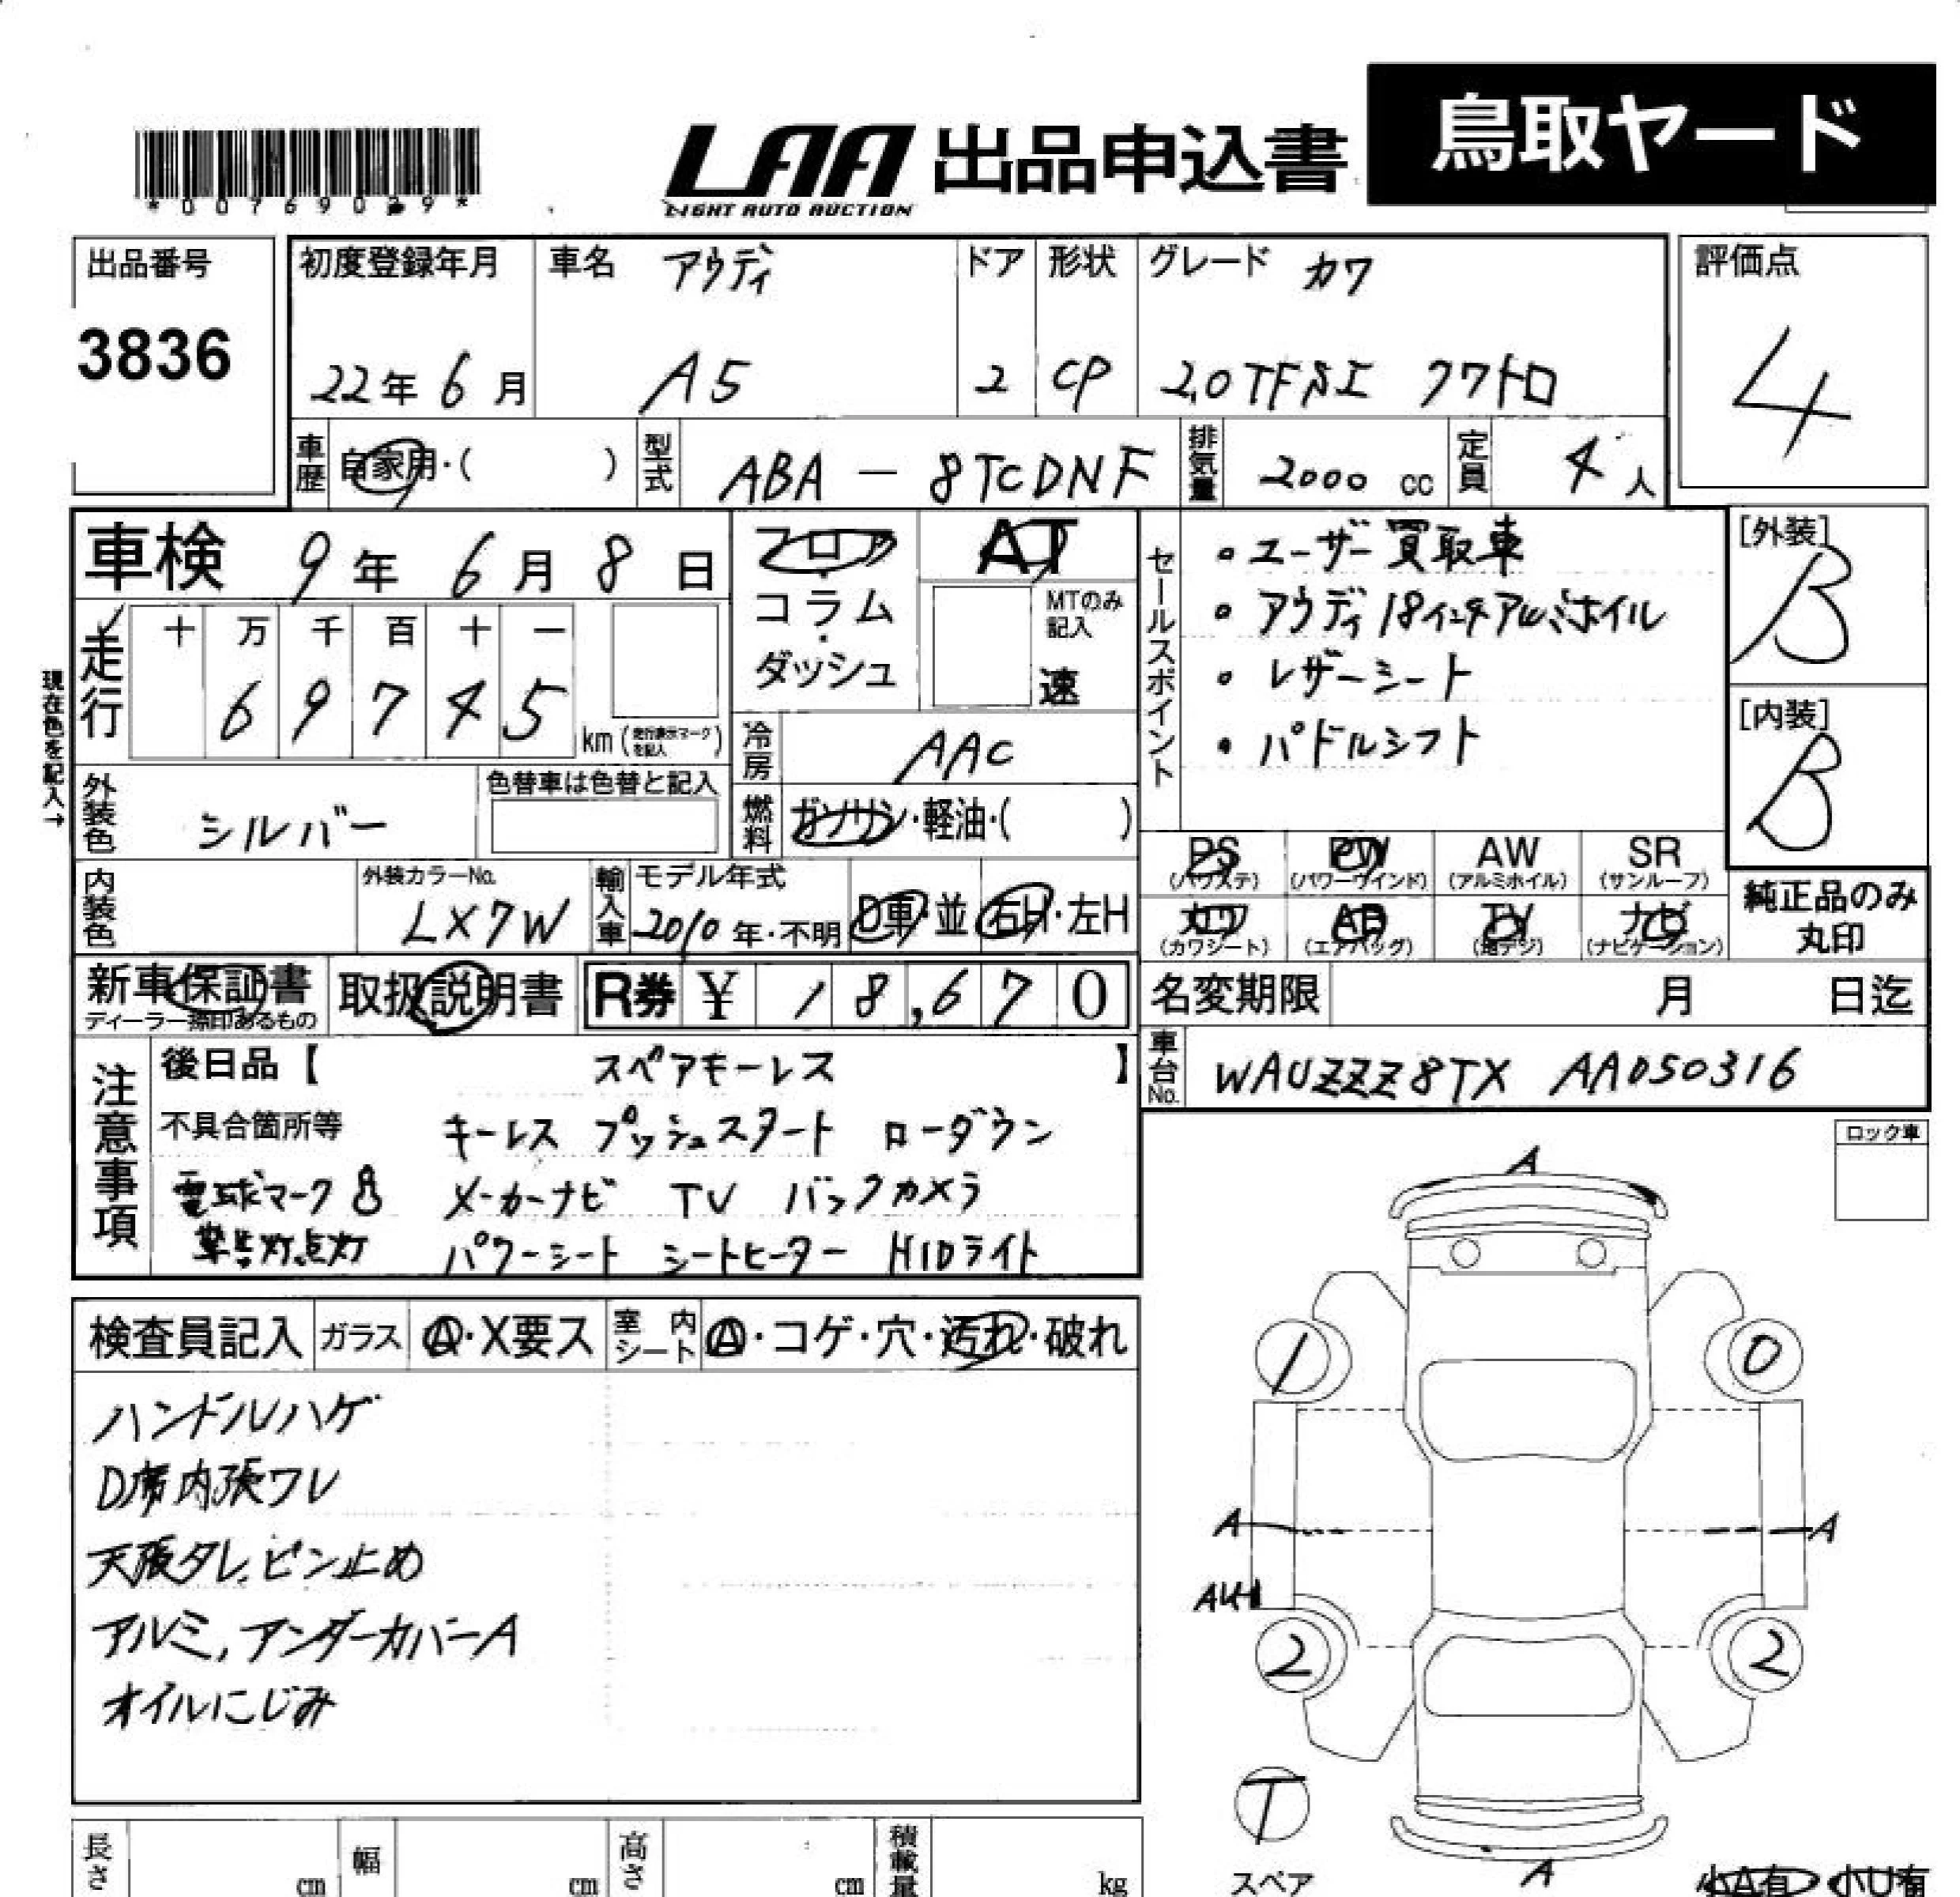 鳥取ヤード
LAA 出品申込書
LIGHT AUTO AUCTION
出品番号 初度登録年月 車名 アウディ ドア 形状 グレード カワ 評価点
3836 22年 6月 A5 2 CP 2.0TFSI クワトロ 4
車歴 自家用・( ) 型式 ABA - 8TCDNF 排気量 2000 cc 定員 4人
車検 9年 6月 8日 フロア・コラム・ダッシュ AT
MTのみ記入 速
セールスポイント
・ユーザー買取車
・アウディ18インチアルミホイル
・レザーシート
・パドルシフト
[外装] B
[内装] B
現在色を記入→
走行 十 万 千 百 十 一
6 9 7 4 5 km (走行表示マークを記入)
冷房 AAC
外装色 シルバー 色替車は色替と記入 燃料 ガソリン・軽油・( )
PS (パワステ) PW (パワーウインド) AW (アルミホイル) SR (サンルーフ)
内装色 外装カラーNo. LX7W 輸入車 モデル年式 2010年・不明 D車・並 右H・左H
カワ (カワシート) AB (エアバッグ) TV (地デジ) ナビ (ナビゲーション) 純正品のみ丸印
新車保証書 ディーラー捺印あるもの 取扱説明書 R券 ¥ 18,670 名変期限 月 日迄
注意事項 後日品【 スペアキーレス 】 車台No. WAUZZZ8TX AA050316
不具合箇所等 キーレス プッシュスタート ローダウン
電球マーク メーカーナビ TV バックカメラ
警告灯点灯 パワーシート シートヒーター HIDライト
ロック車
検査員記入 ガラス A・X要ス 室内シート A・コゲ・穴・汚れ・破れ
ハンドルハゲ
D席内張ワレ
天張タレ、ピン止め
アルミ, アンダーカバーA
オイルにじみ
A
1 0
A A
2 2
T
スペア
A
小A有 小U有
長さ cm 幅 cm 高さ cm 積載量 kg